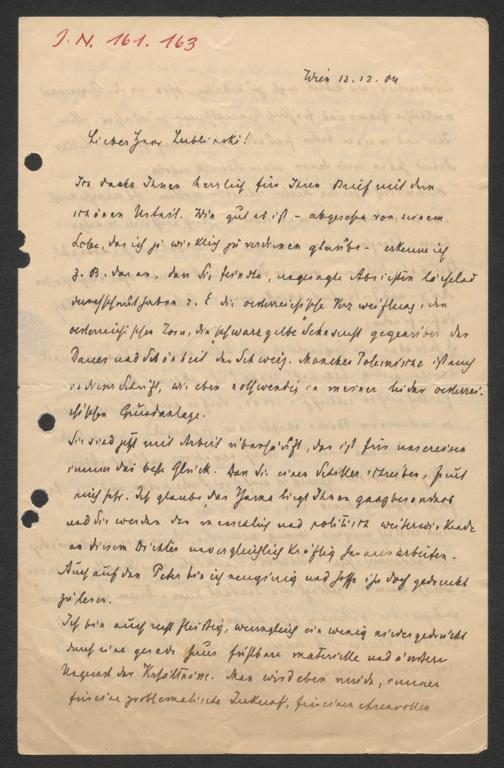 J. N. 161.163
Wien 13.12.04
Lieber Herr Lublinski!
Ich danke Ihnen herzlich für Ihren Brief mit dem
schönen Urteil. Wie gut es ist – abgesehen von seinem
Lobe, das ich ja wirklich zu verdienen glaube – erkenne ich
z. B. daran, dass Sie feinste, ungesagte Absichten lächelnd
durchschaut haben z. B. die oesterreichische Verzweiflung, den
oesterreichischen Zorn, die "schwarzgelbe" Sehnsucht gegenüber der
"Dauer und Schönheit" der Schweiz. Manches Polemische ist auch
in dieser Schrift, wie eben notwendig in meiner leider oesterrei-
chischen Grundanlage.
Sie sind jetzt mit Arbeit überhäuft, das ist für unsereinen
immer das beste Glück. Dass Sie einen Schiller schreiben, freut
mich sehr. Ich glaube, das Thema liegt Ihnen ganz besonders
und Sie werden das menschlich und politisch weiterwirkende
an diesem Dichter unvergleichlich kräftig herausarbeiten.
Auch auf den Peter bin ich neugierig und hoffe ihn doch gedruckt
zu lesen.
Ich bin auch recht fleissig, wenngleich ein wenig niedergedrückt
durch eine gerade heuer fühlbare materielle und äussere
Ungunst der Verhältnisse. Man wird eben müde, immer
für eine problematische Zukunft, für einen ehrenvollen